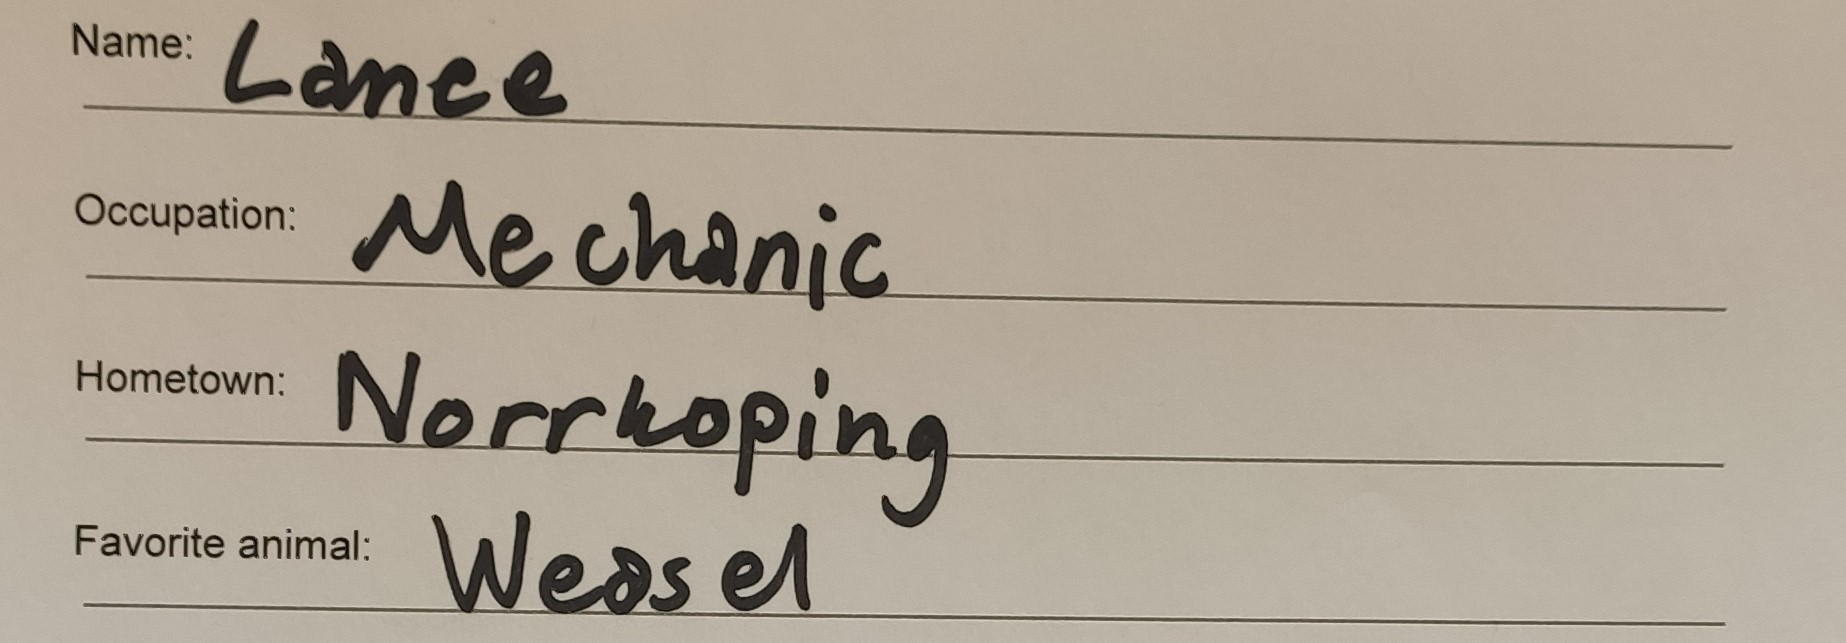 Name: Lance
Occupation: Mechanic
Hometown: Norrkoping
Favorite animal: Weasel